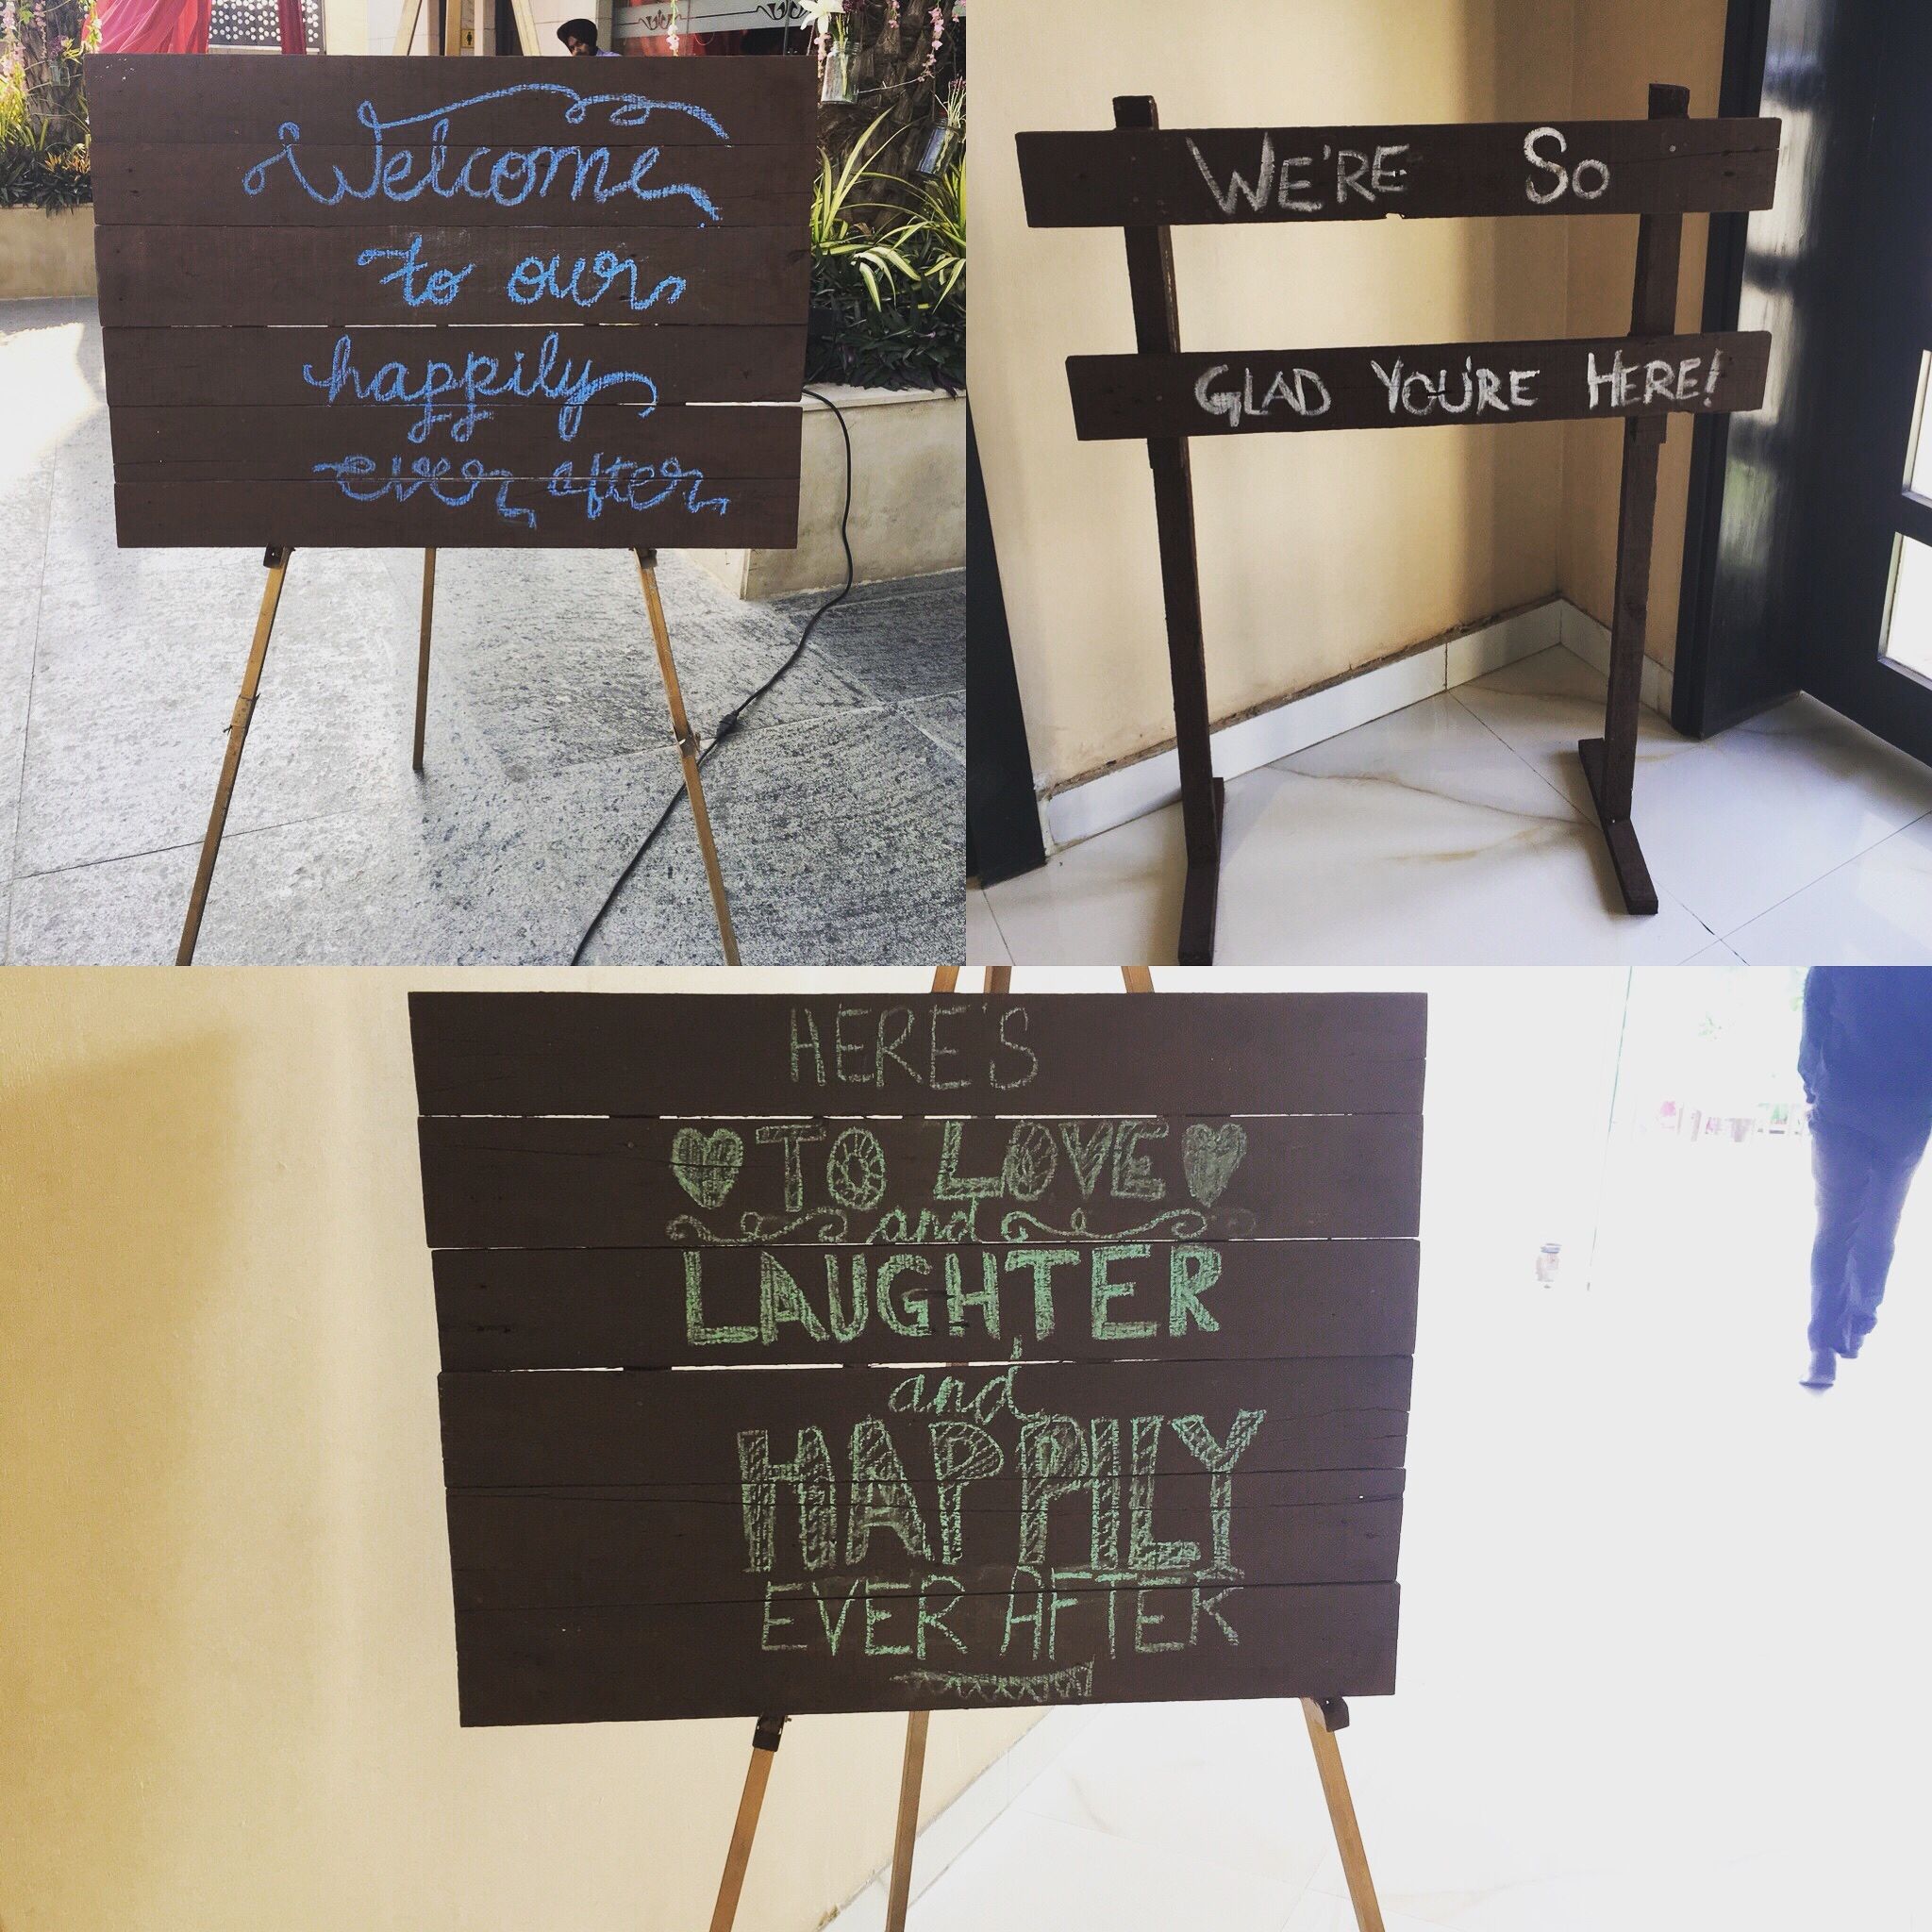 Welcome
to our
happily
ever after
WE'RE SO
GLAD YOU'RE HERE!
HERE'S
TO LOVE
and
LAUGHTER
and
HAPPILY
EVER AFTER